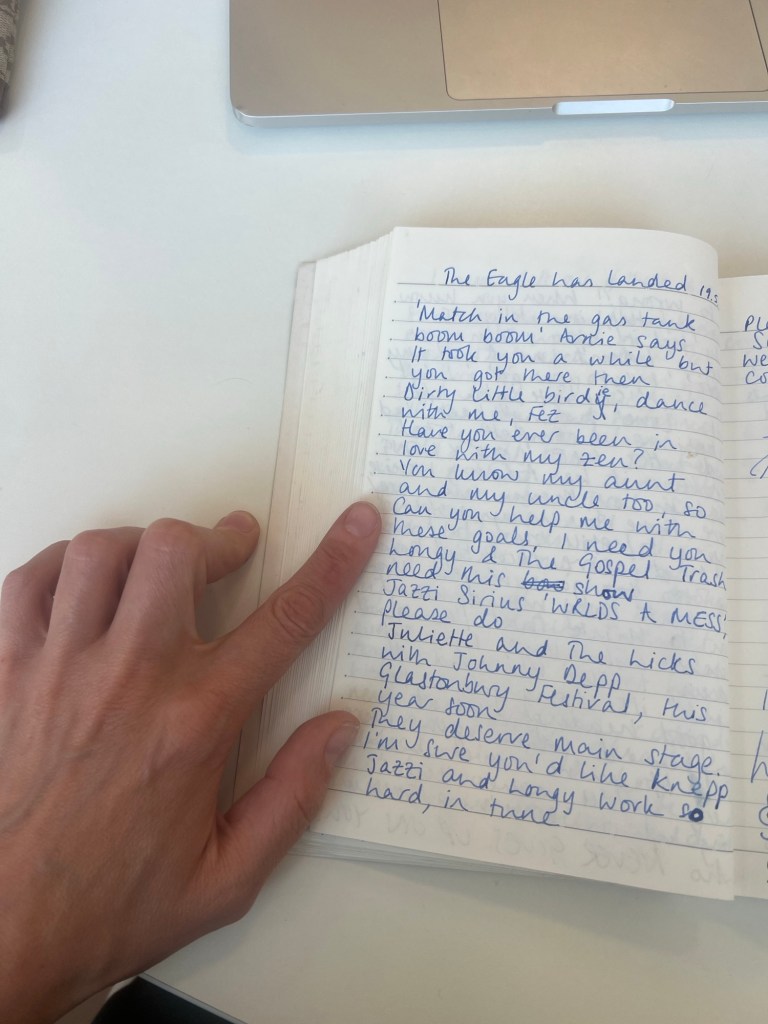 The Eagle has Landed 19.5
'Match in the gas tank
boom boom' Arxie says
It took you a while but
you got there then
Dirty little birdie, dance
with me, Fez
Have you ever been in
love with my zen?
You know my aunt
and my uncle too, so
Can you help me with
these goals, I need you
Longy & The Gospel Trash
need this show
Jazzi Sirius 'WRLDS A MESS',
please do
Juliette and The Licks
with Johnny Depp
Glastonbury Festival, this
year soon
They deserve main stage.
I'm sure you'd like Knepp
Jazzi and Longy work so
hard, in tune